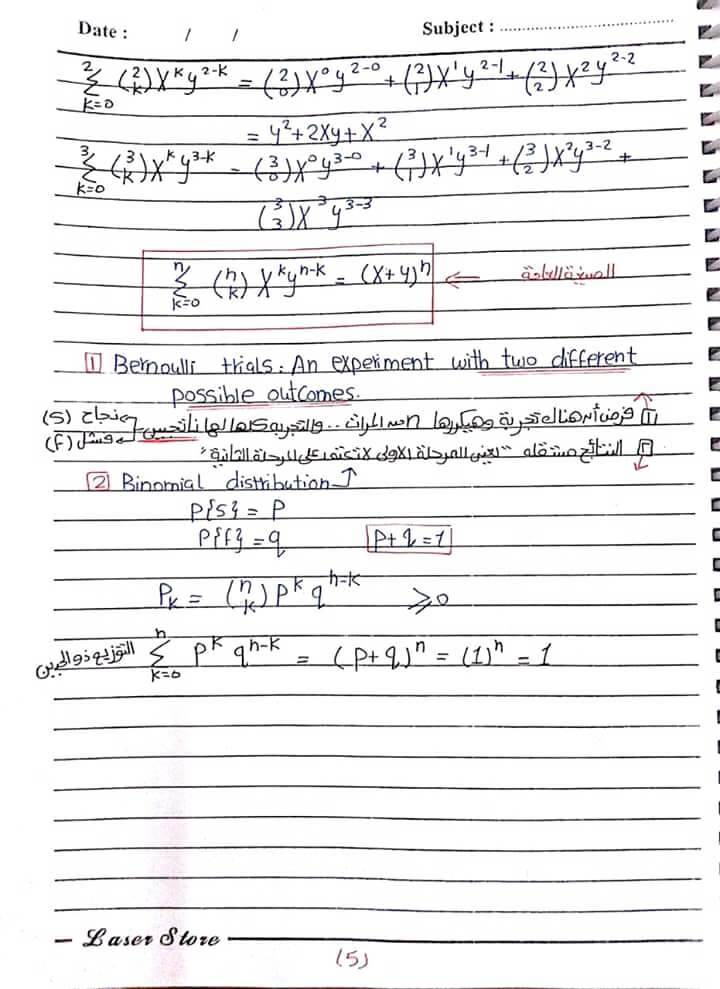 Date : / / Subject : ........................
∑_{k=0}^{2} (2 k) X^k y^{2-k} = (2 0) X^0 y^{2-0} + (2 1) X^1 y^{2-1} + (2 2) X^2 y^{2-2}
= y^2 + 2Xy + X^2
∑_{k=0}^{3} (3 k) X^k y^{3-k} = (3 0) X^0 y^{3-0} + (3 1) X^1 y^{3-1} + (3 2) X^2 y^{3-2} +
(3 3) X^3 y^{3-3}
∑_{k=0}^{n} (n k) X^k y^{n-k} = (X+y)^n ← الصيغة العامة
1 Bernoulli trials: An experiment with two different
possible outcomes.
1 فرض أن هناك تجربة وهيكررها n من المرات .. والتجربة كلها لها ناتجين نجاح (S) فشل (f)
2 النتائج مستقلة "يعني المرحلة الأولى لا تعتمد على المرحلة الثانية"
2 Binomial distribution
P{S} = P
P{f} = q P+q=1
P_k = (n k) P^k q^{n-k} ≥ 0
التوزيع ذو الحدين ∑_{k=0}^{n} P^k q^{n-k} = (P+q)^n = (1)^n = 1
Laser Store
(5)